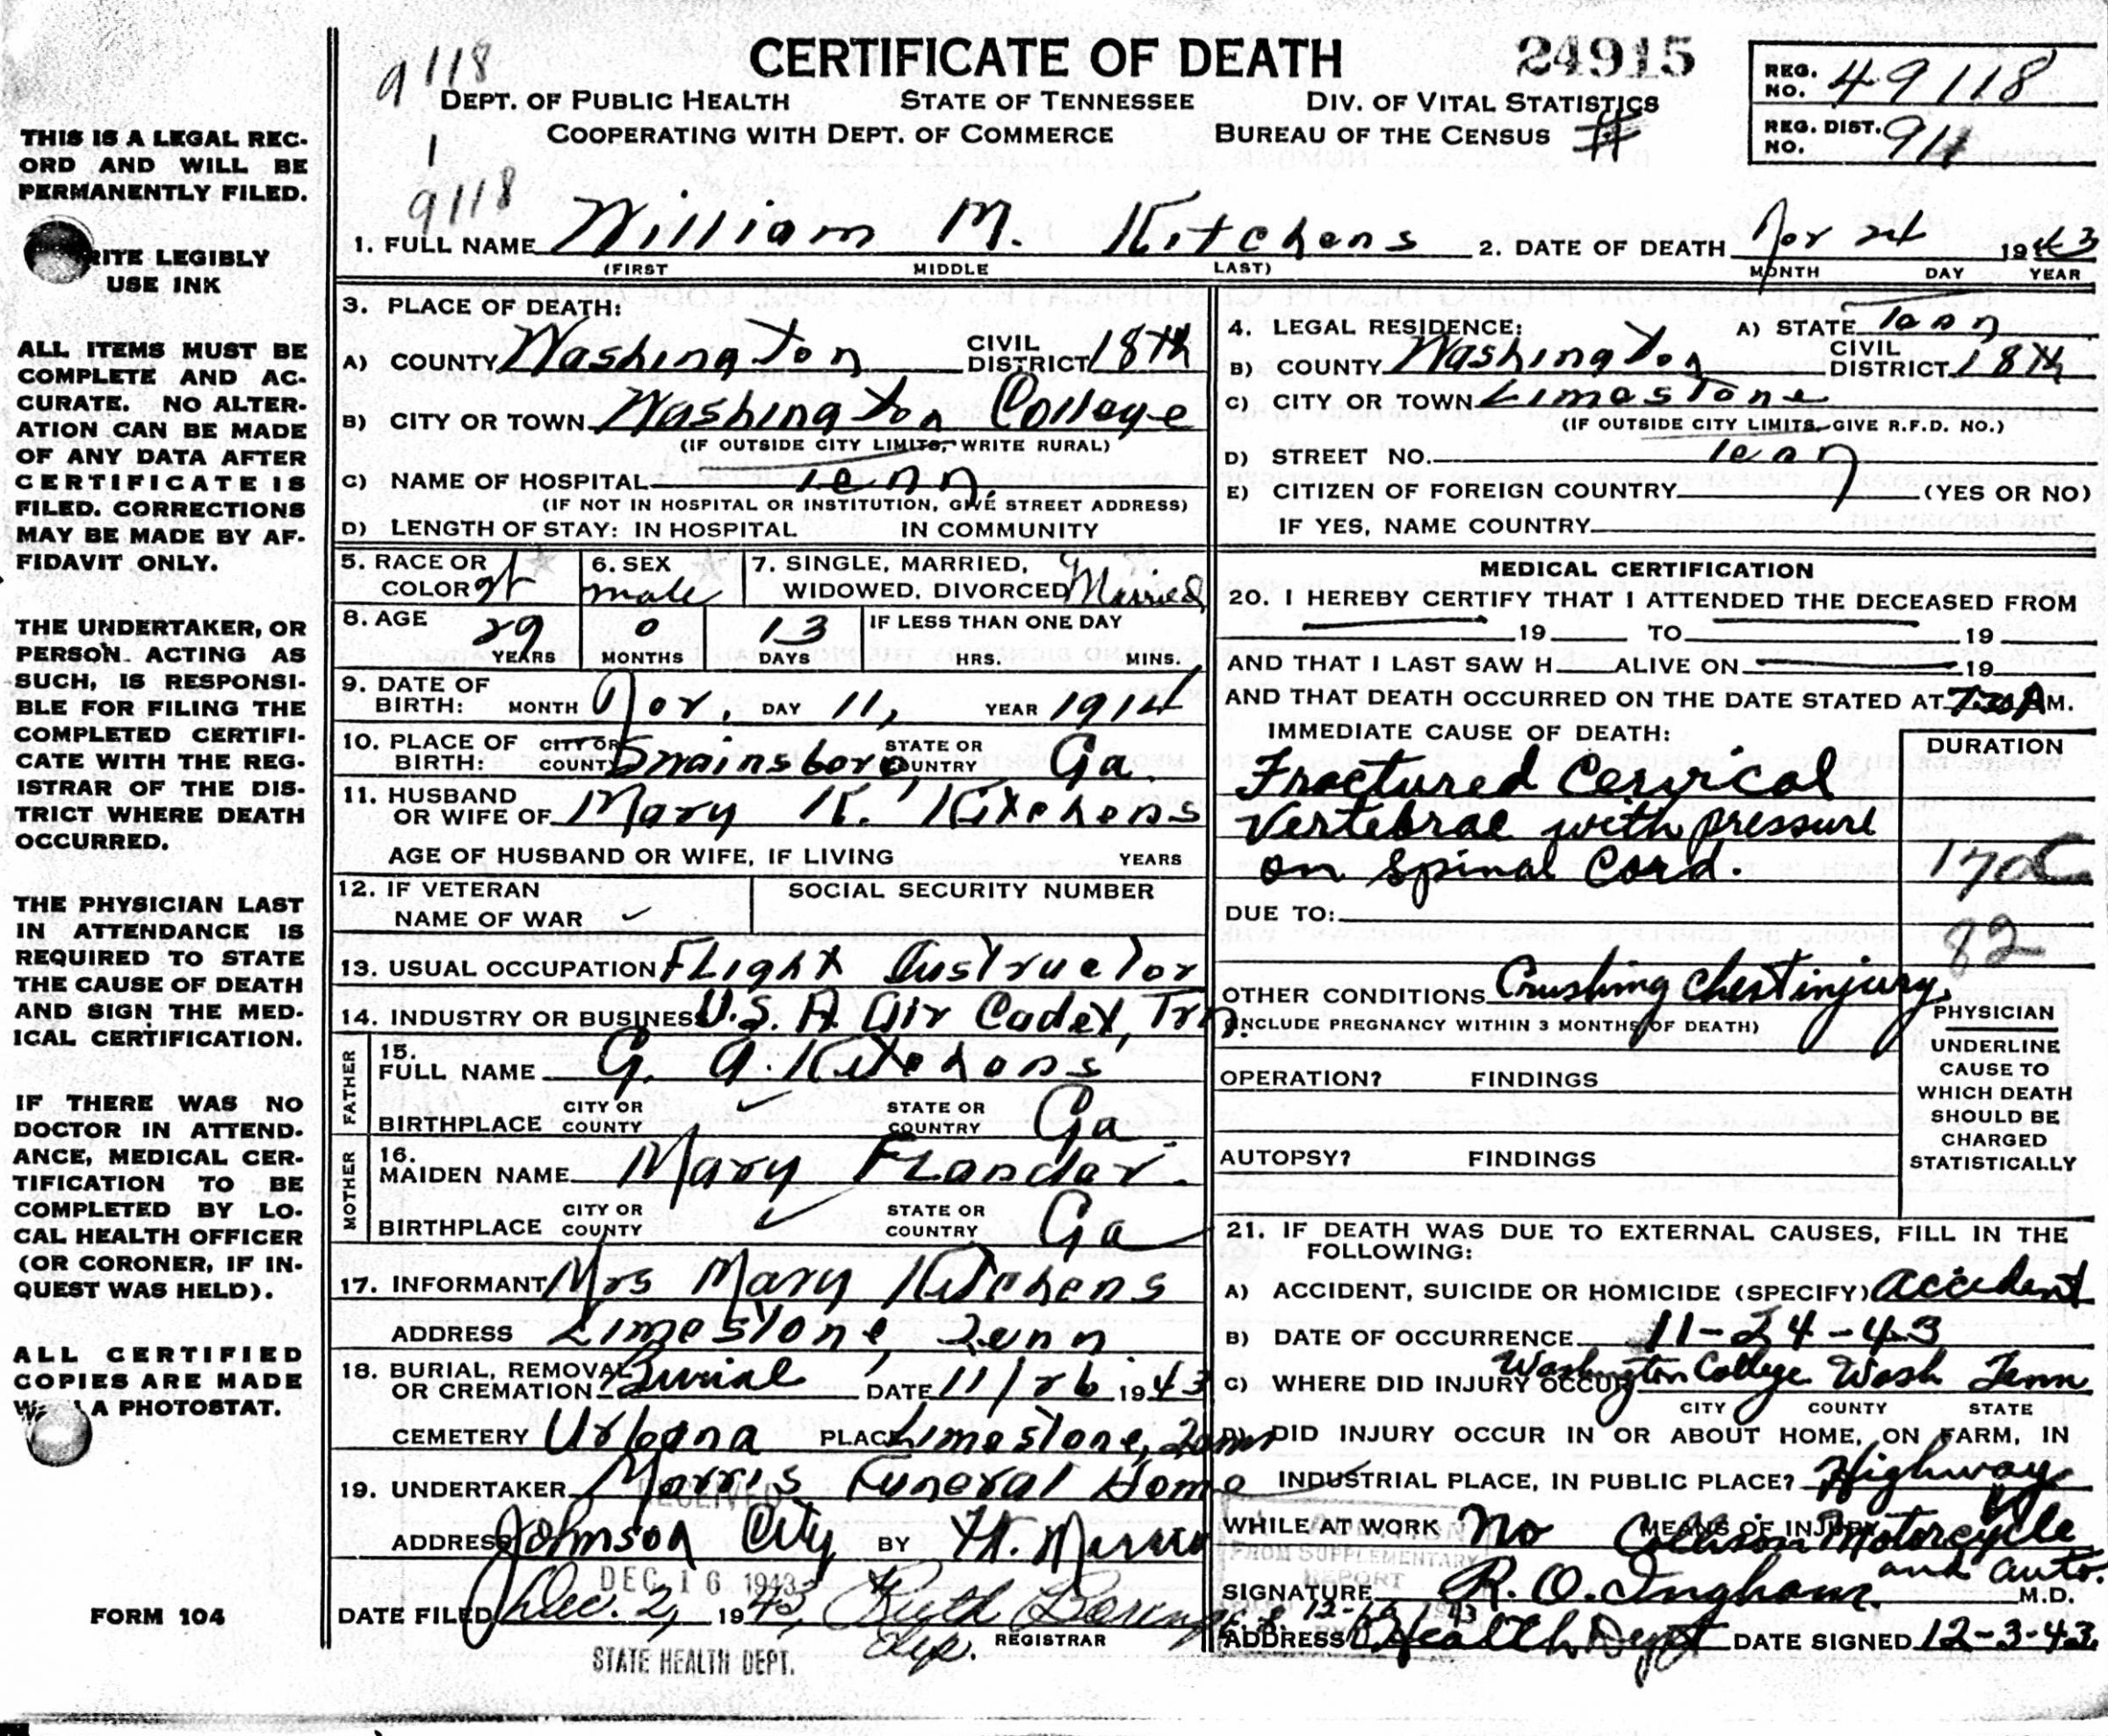 9118
CERTIFICATE OF DEATH 24915
DEPT. OF PUBLIC HEALTH STATE OF TENNESSEE DIV. OF VITAL STATISTICS
COOPERATING WITH DEPT. OF COMMERCE BUREAU OF THE CENSUS #
REG. NO. 49118
REG. DIST. NO. 911
1
9118
1. FULL NAME William M. Kitchens 2. DATE OF DEATH Nov 24 1943
(FIRST MIDDLE LAST) MONTH DAY YEAR
3. PLACE OF DEATH:
A) COUNTY Washington CIVIL DISTRICT 18th
B) CITY OR TOWN Washington College
(IF OUTSIDE CITY LIMITS, WRITE RURAL)
C) NAME OF HOSPITAL Tenn.
(IF NOT IN HOSPITAL OR INSTITUTION, GIVE STREET ADDRESS)
D) LENGTH OF STAY: IN HOSPITAL IN COMMUNITY
4. LEGAL RESIDENCE: A) STATE Tenn
B) COUNTY Washington CIVIL DISTRICT 18th
C) CITY OR TOWN Limestone
(IF OUTSIDE CITY LIMITS, GIVE R.F.D. NO.)
D) STREET NO. Tenn
E) CITIZEN OF FOREIGN COUNTRY (YES OR NO)
IF YES, NAME COUNTRY
5. RACE OR COLOR 6. SEX male 7. SINGLE, MARRIED, WIDOWED, DIVORCED Married
8. AGE 29 0 13 IF LESS THAN ONE DAY
YEARS MONTHS DAYS HRS. MINS.
9. DATE OF BIRTH: MONTH Nov. DAY 11, YEAR 1914
10. PLACE OF BIRTH: CITY OR COUNTY Swainsboro, STATE OR COUNTRY Ga.
11. HUSBAND OR WIFE OF Mary K. Kitchens
AGE OF HUSBAND OR WIFE, IF LIVING YEARS
12. IF VETERAN NAME OF WAR SOCIAL SECURITY NUMBER
13. USUAL OCCUPATION Flight Instructor
14. INDUSTRY OR BUSINESS U.S. A. Air Cadet, Trn.
FATHER
15. FULL NAME G. A. Kitchens
BIRTHPLACE CITY OR COUNTY STATE OR COUNTRY Ga.
MOTHER
16. MAIDEN NAME Mary Flander.
BIRTHPLACE CITY OR COUNTY STATE OR COUNTRY Ga
17. INFORMANT Mrs Mary Kitchens
ADDRESS Limestone, Tenn.
18. BURIAL, REMOVAL OR CREMATION Burial DATE 11/26 1943
CEMETERY Urbana PLACE Limestone, Tenn
19. UNDERTAKER Morris Funeral Home
RECEIVED
ADDRESS Johnson City BY
DEC 16 1943
DATE FILED Dec. 2, 1943, Ruth
REGISTRAR
Dep.
STATE HEALTH DEPT.
MEDICAL CERTIFICATION
20. I HEREBY CERTIFY THAT I ATTENDED THE DECEASED FROM
19 TO 19
AND THAT I LAST SAW H ALIVE ON 19
AND THAT DEATH OCCURRED ON THE DATE STATED AT 7:20 A M.
IMMEDIATE CAUSE OF DEATH: DURATION
Fractured Cervical
Vertebrae with pressure
on Spinal Cord.
170
DUE TO:
82
OTHER CONDITIONS Crushing Chest injury.
(INCLUDE PREGNANCY WITHIN 3 MONTHS OF DEATH)
OPERATION? FINDINGS
AUTOPSY? FINDINGS
PHYSICIAN
UNDERLINE
CAUSE TO
WHICH DEATH
SHOULD BE
CHARGED
STATISTICALLY
21. IF DEATH WAS DUE TO EXTERNAL CAUSES, FILL IN THE
FOLLOWING:
A) ACCIDENT, SUICIDE OR HOMICIDE (SPECIFY) Accident
B) DATE OF OCCURRENCE 11-24-43
C) WHERE DID INJURY OCCUR Washington College Wash Tenn
CITY COUNTY STATE
D) DID INJURY OCCUR IN OR ABOUT HOME, ON FARM, IN
INDUSTRIAL PLACE, IN PUBLIC PLACE? Highway
WHILE AT WORK No MEANS OF INJURY Collison Motorcycle
and auto.
FROM SUPPLEMENTARY
REPORT
SIGNATURE R. O. Ingham. M.D.
ADDRESS Health Dept DATE SIGNED 12-3-43
THIS IS A LEGAL REC-
ORD AND WILL BE
PERMANENTLY FILED.
RITE LEGIBLY
USE INK
ALL ITEMS MUST BE
COMPLETE AND AC-
CURATE. NO ALTER-
ATION CAN BE MADE
OF ANY DATA AFTER
CERTIFICATE IS
FILED. CORRECTIONS
MAY BE MADE BY AF-
FIDAVIT ONLY.
THE UNDERTAKER, OR
PERSON ACTING AS
SUCH, IS RESPONSI-
BLE FOR FILING THE
COMPLETED CERTIFI-
CATE WITH THE REG-
ISTRAR OF THE DIS-
TRICT WHERE DEATH
OCCURRED.
THE PHYSICIAN LAST
IN ATTENDANCE IS
REQUIRED TO STATE
THE CAUSE OF DEATH
AND SIGN THE MED-
ICAL CERTIFICATION.
IF THERE WAS NO
DOCTOR IN ATTEND-
ANCE, MEDICAL CER-
TIFICATION TO BE
COMPLETED BY LO-
CAL HEALTH OFFICER
(OR CORONER, IF IN-
QUEST WAS HELD).
ALL CERTIFIED
COPIES ARE MADE
A PHOTOSTAT.
FORM 104